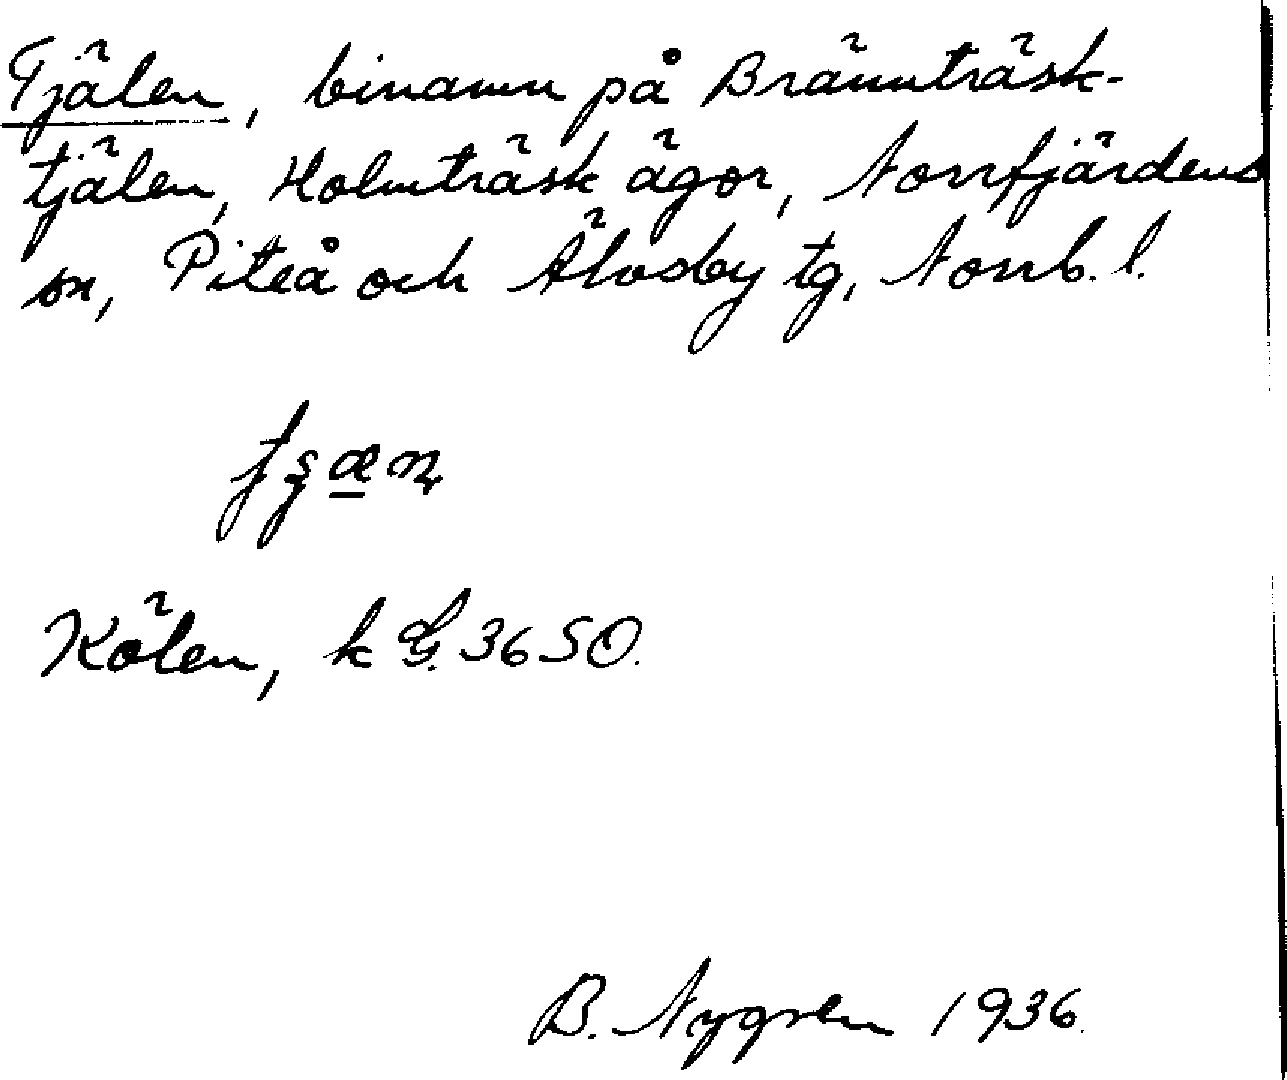 Tjälen, binamn på Brännträsk-
tjälen, Holmträsk ägor, Norrfjärdens
sn, Piteå och Älvsby tg, Norrb. l.
Kölen, k G. 3650.
B. Nygren 1936.